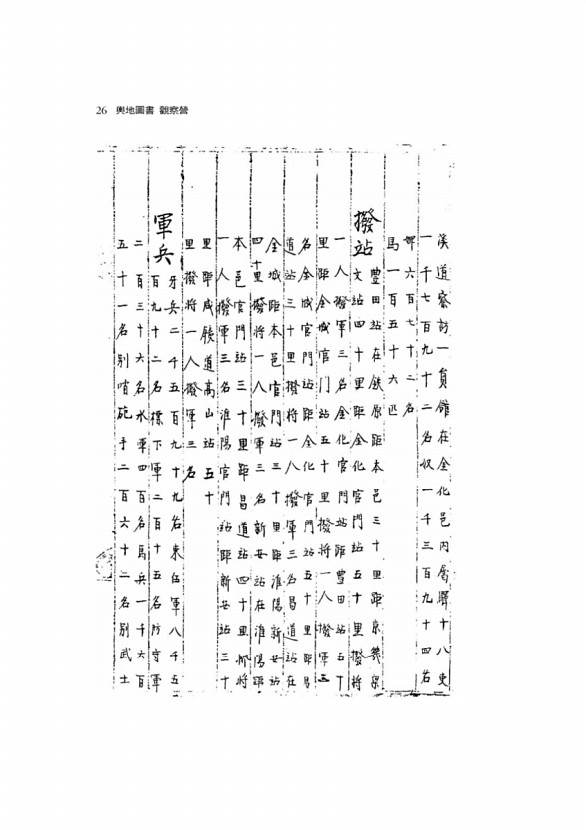 26 輿地圖書 觀察營
溪道察訪一員館在金化邑内屬驛十八吏
一千七百九十二名奴一千三百九十四名
婢六百七十二名
馬一百五十六匹
撥站
豊田站在鉄原距本邑三十里距京畿梁
文站四十里距金化官門站五十里撥將
一人撥軍三名金化官門站距豊田站五十
里距金城官门站五十里撥將一人撥軍三
名金城官門站距金化官門站五十里距昌
道站三十里撥將一人撥軍三名昌道站在
金城距本邑官門站三十里距淮陽新安站
四十里撥將一人撥軍三名新安站在淮陽距
本邑官門站三十里距昌道站四十里撥將
一人撥軍三名淮陽官門站距新安站三十
里距咸鏡道高山站五十
里撥將一人撥軍三名
軍兵
牙兵二千五百九十九名束伍軍八千五
百九十二名標下軍二百十五名防守軍
二百三十六名水軍四百名馬兵一千六百
五十一名別哨砲手二百六十二名別武士